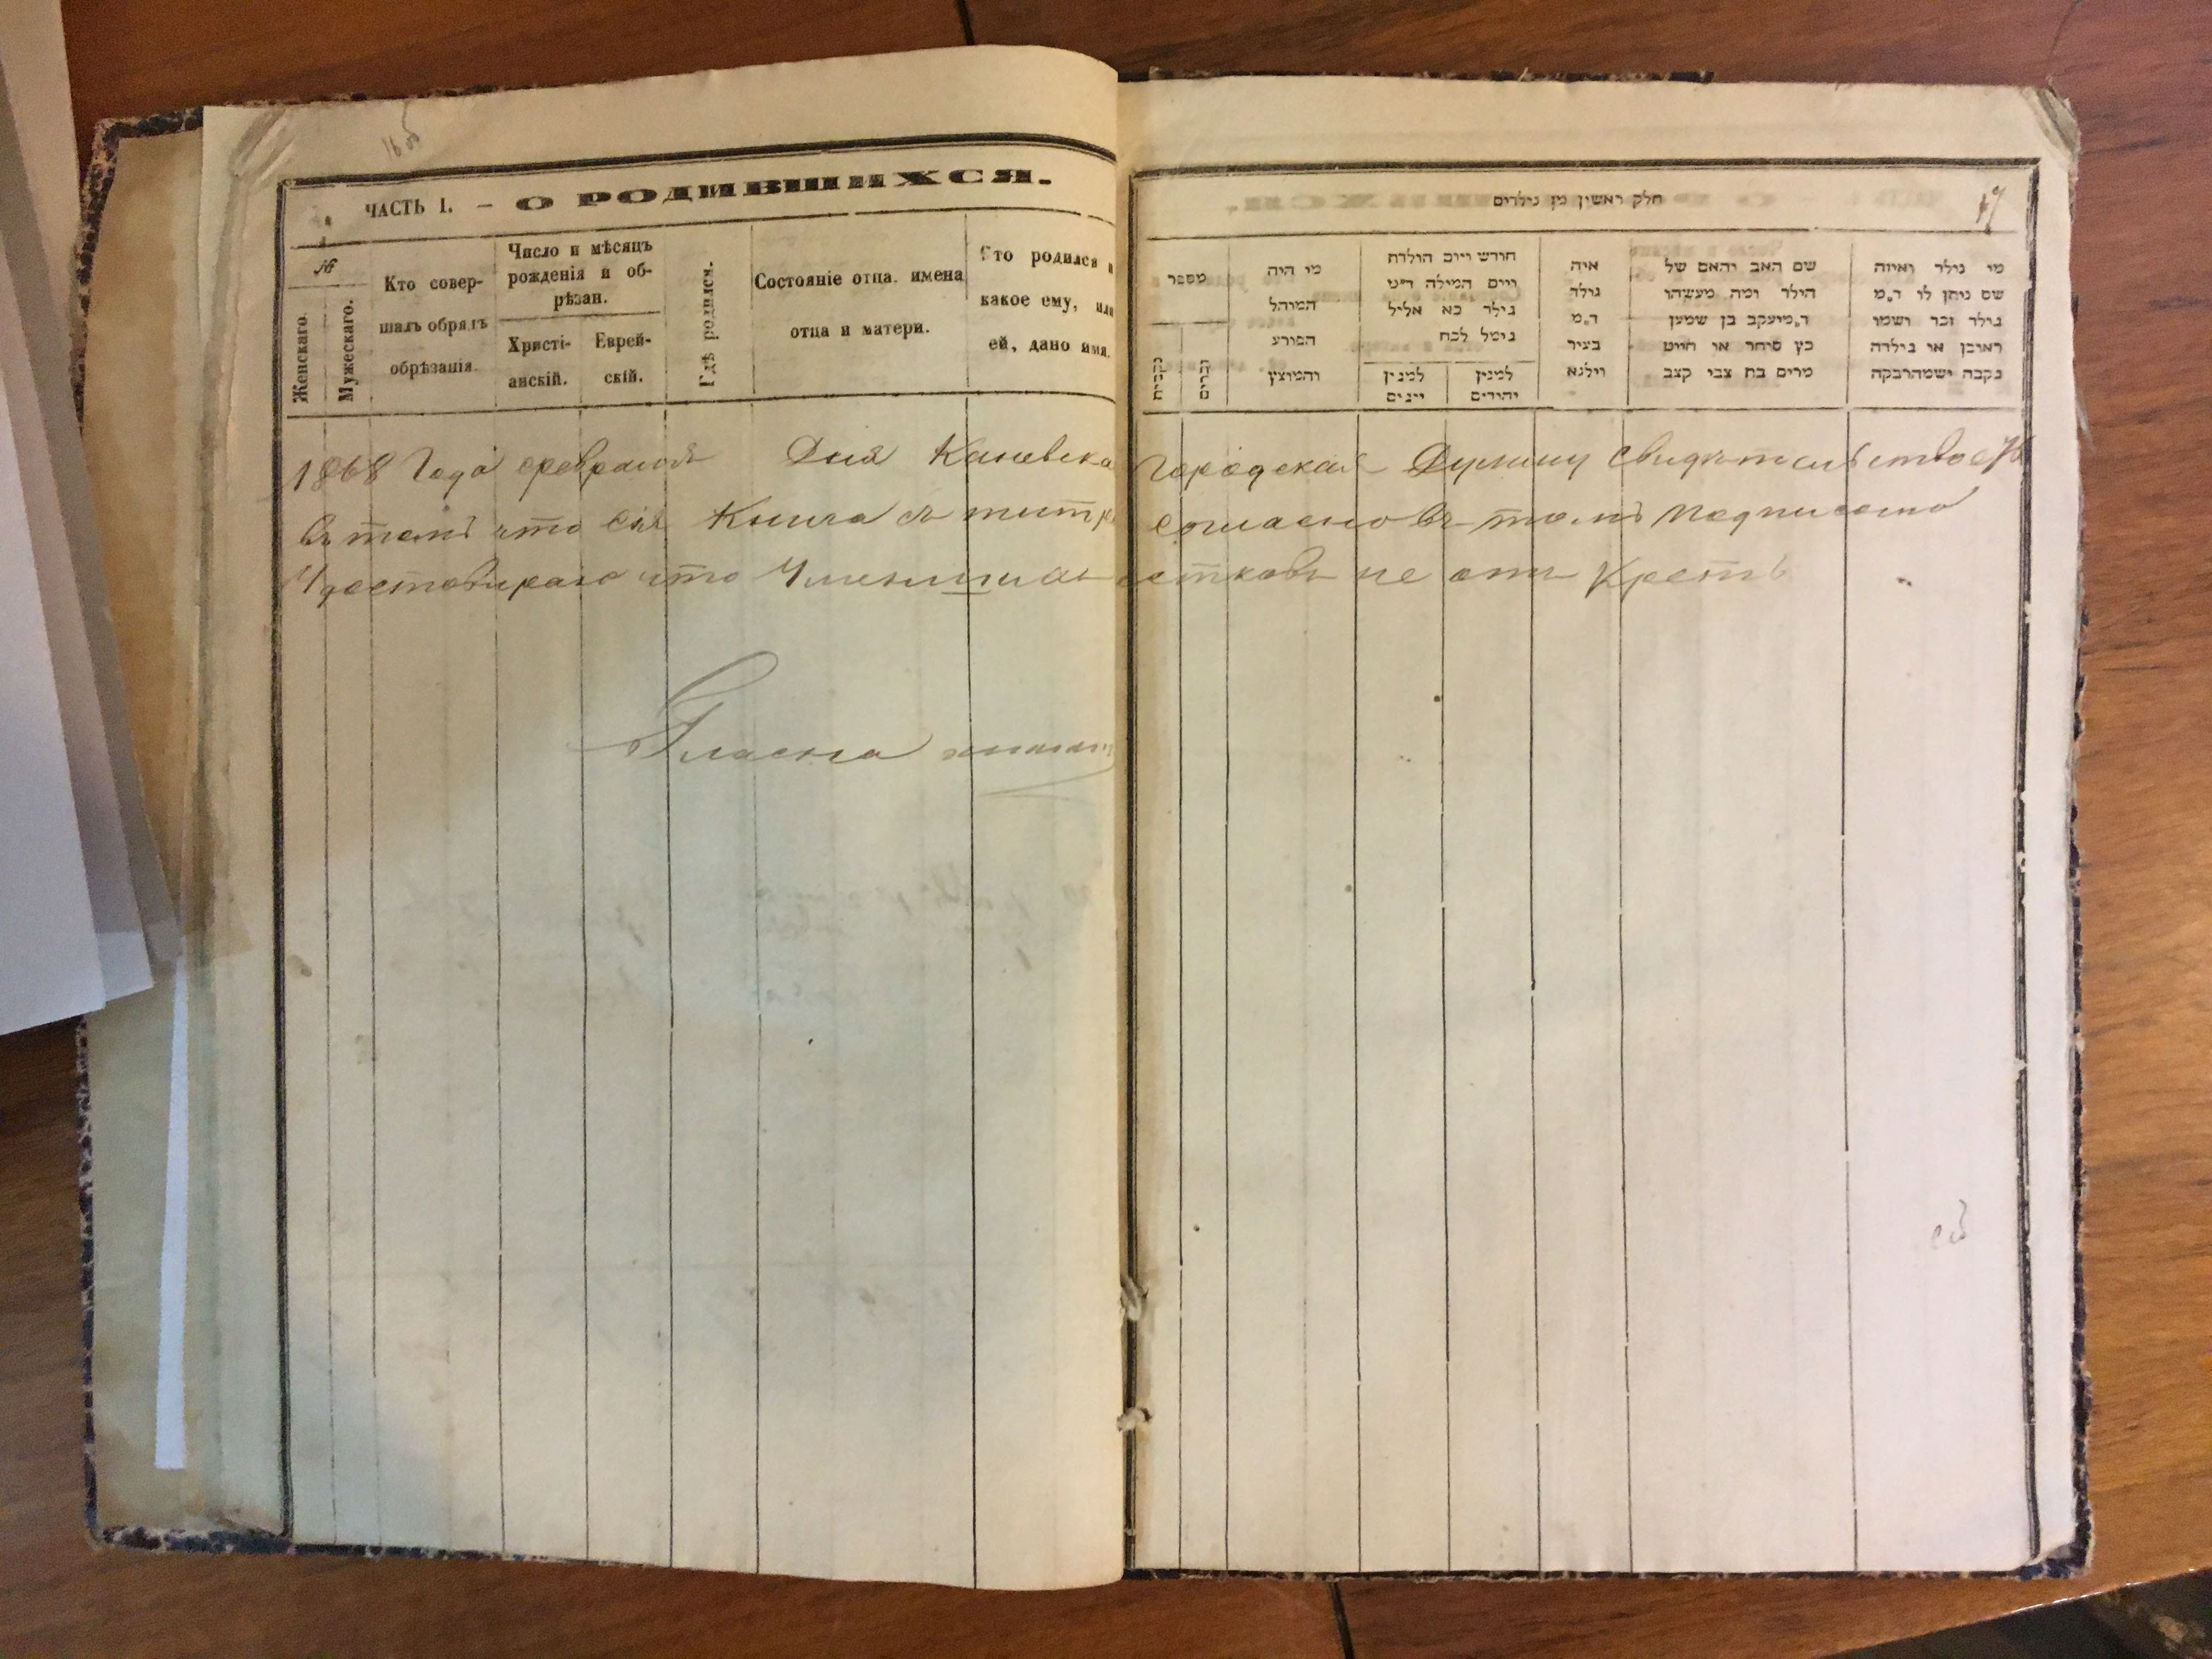 16 об
ЧАСТЬ I. — О РОДИВШИХСЯ.
№
Женскаго.
Мужескаго.
Кто совер-
шалъ обрядъ
обрѣзанія.
Число и мѣсяцъ
рожденія и об-
рѣзан.
Христі-
анскій.
Еврей-
скій.
Гдѣ родился.
Состояніе отца, имена
отца и матери.
Кто родился и
какое ему, или
ей, дано имя.
חלק ראשון מן נולדים
17
מספר
נקבות
זכרים
מי היה
המוהל
הפורע
והמוצץ
חודש ויום הולדת
ויום המילה ד״מ
נולד כא אלול
נימול לכח
למנין
יוינים
למנין
יהודים
איה
נולד
ד״מ
בעיר
ווילנא
שם האב והאם של
הילד ומה מעשהו
ד״מ יעקב בן שמעון
כץ סוחר או חייט
מרים בת צבי קצב
מי נולד ואיזה
שם ניתן לו ד״מ
נולד זכר ושמו
ראובן או נולדה
נקבה ושמה רבקה
1868 Года февраля Дня Каневска Городская Думу Свидѣтельство
въ томъ что Сія Книга съ согласно въ томъ подписано
Удостовѣряю что не
Гласна